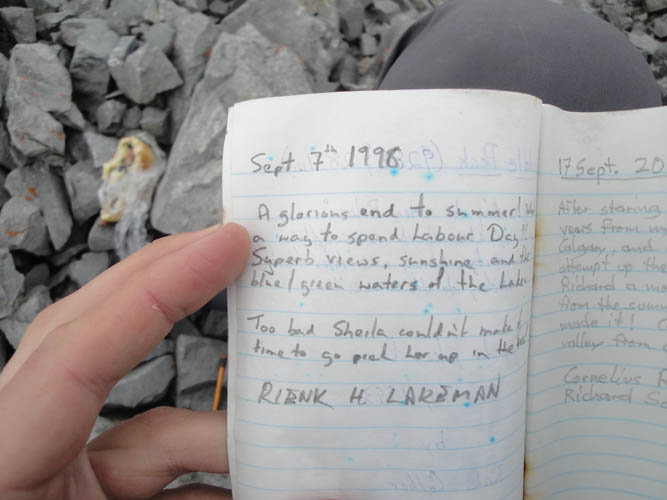 Sept. 7th 1998
A glorious end to summer!
a way to spend Labour Day!!
Superb views, sunshine and the
blue/green waters of the Lake
Too bad Sheila couldn't make it
time to go pick her up in the
RIENK H. LAKEMAN
17 Sept. 20
After staring
years from my
Calgary, and
attempt up the
Richard a mo
from the summ
made it!
valley from
Cornelius
Richard